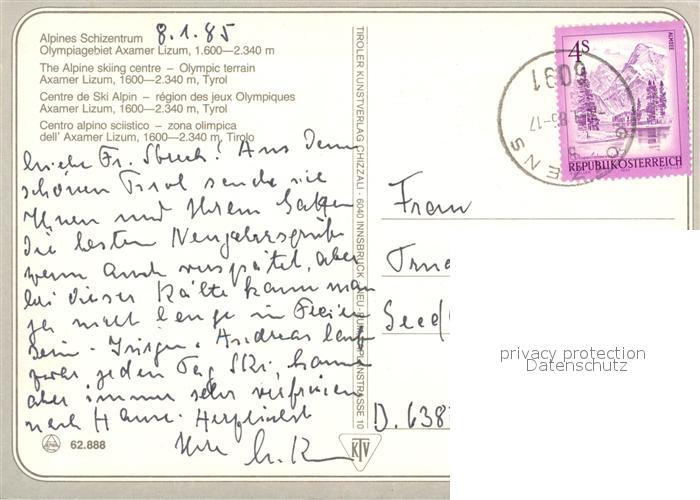 Alpines Schizentrum 8.1.85
Olympiagebiet Axamer Lizum, 1.600—2.340 m
The Alpine skiing centre – Olympic terrain
Axamer Lizum, 1600—2340 m, Tyrol
Centre de Ski Alpin – région des jeux Olympiques
Axamer Lizum, 1600—2340 m, Tyrol
Centro alpino sciistico – zona olimpica
dell' Axamer Lizum, 1600—2.340 m, Tirolo
Liebe Fr. ! Aus dem
schönen Tirol sende sie
Ihnen und Ihrem Gatten
die besten Neujahrsgrüße
wenn auch verspätet, aber
bei dieser Kälte kann man
ja nicht lange in Freien
sein. Andreas
zwar jeden Tag Ski, kommt
aber immer sehr verfroren
nach Hause. Herzlichst
Ihre
62.888
TIROLER KUNSTVERLAG CHIZZALI · 6040 INNSBRUCK · NEU-RUM, STRASSE 10
KTV
4S
ALMSEE
REPUBLIK ÖSTERREICH
6091
85-17
GÖTZENS
Frau
D. 638
privacy protection
Datenschutz